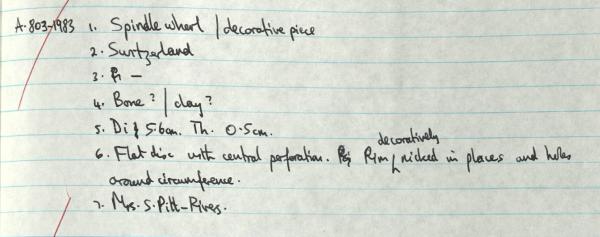 A.803-1983 1. Spindle whorl / decorative piece
2. Switzerland
3. —
4. Bone? / clay?
5. Di 5.6cm. Th. 0.5cm.
decoratively
6. Flat disc with central perforation. Rim nicked in places and holes
around circumference.
7. Mrs. S. Pitt-Rivers.